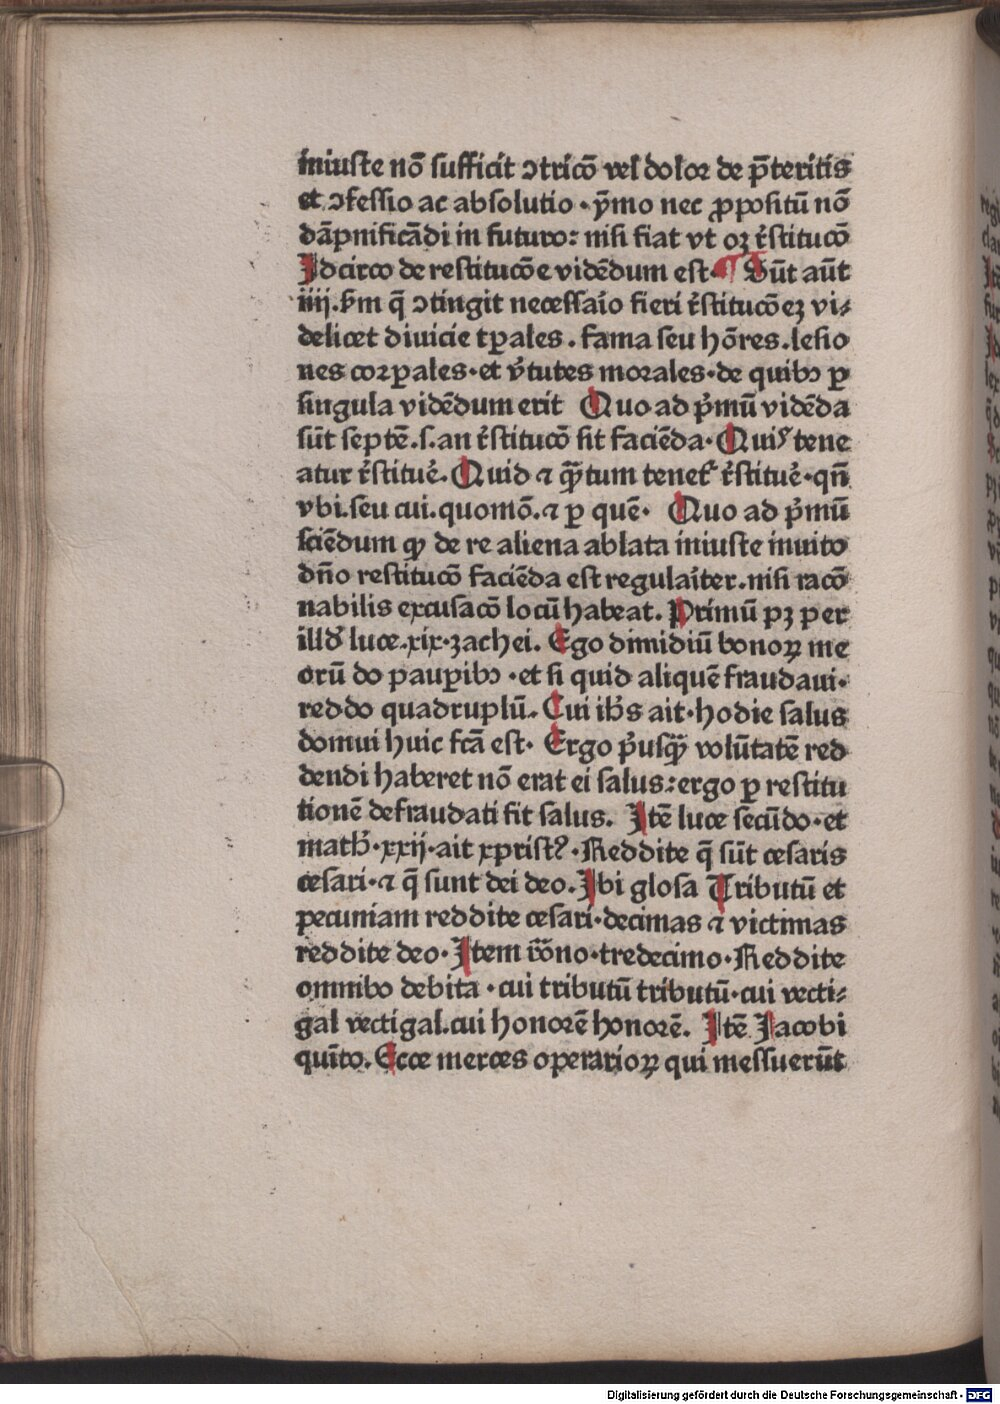 iniuste nō sufficit ↄtricō vel dolor de p̄teritis
et ↄfessio ac absolutio · ȳmo nec ꝓpositū nō
dāpnificādi in futuro: nisi fiat vt oꝫ r̄stitucō
Idcirco de restitucōe vidēdum est· ¶ Sūt aūt
iiij. ẜm q̄ ↄtingit necessaio fieri r̄stitucōeꝫ vi⸗
delicet diuicie tꝑales . fama seu hōres . lesio
nes corꝑales · et v̄tutes morales · de quibꝰ ꝑ
singula vidēdum erit Quo ad p̄mū vidēda
sūt septē .ſ. an r̄stitucō sit faciēda · Quis tene
atur r̄stituē. Quid ⁊ q̄tum tenet᷑ r̄stituē · qn̄
vbi. seu cui. quomō. ⁊ ꝑ quē · Quo ad p̄mū
sciēdum ꝙ de re aliena ablata iniuste inuito
dn̄o restitucō faciēda est regulaiter. nisi racō
nabilis excusacō locū habeat. Primū pꝫ per
illđ luce .xix. zachei. Ego dimidiū bonoꝝ me
orū do pauꝑibꝰ · et si quid aliquē fraudaui ·
reddo quadruplū. Cui ih̄s ait · hodie salus
domui huic fcā est · Ergo p̄usq̄ volūtatē red
dendi haberet nō erat ei salus: ergo ꝑ restitu
tionē defraudati fit salus. Itē luce secūdo · et
math̄ · xxij · ait xprist⁹ · Reddite q̄ sūt cesaris
cesari · ⁊ q̄ sunt dei deo. Ibi glosa Tributū et
pecuniam reddite cesari · decimas ⁊ victimas
reddite deo · Item rōno · tredecimo · Reddite
omnibo debita · cui tributū tributū · cui vecti⸗
gal vectigal. cui honorē honorē. Itē Jacobi
quīto. Ecce merces operarioꝝ qui messuerūt
Digitalisierung gefördert durch die Deutsche Forschungsgemeinschaft - DFG